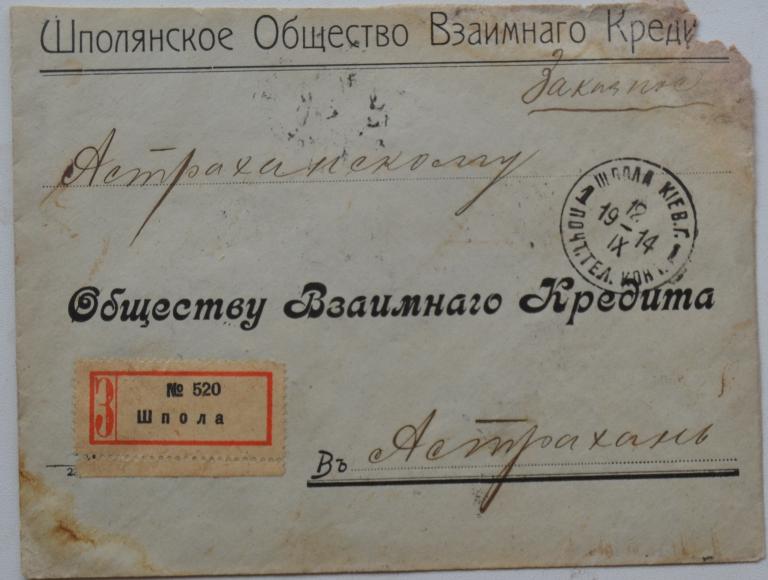 Шполянское Общество Взаимнаго Креди
Заказное
Астраханскому
ШПОЛА КІЕВ. Г.
12
19 – 14
IX
1 1
ПОЧТ. ТЕЛ. КОНТ.
Обществу Взаимнаго Кредита
З
№ 520
Шпола
Въ Астрахань